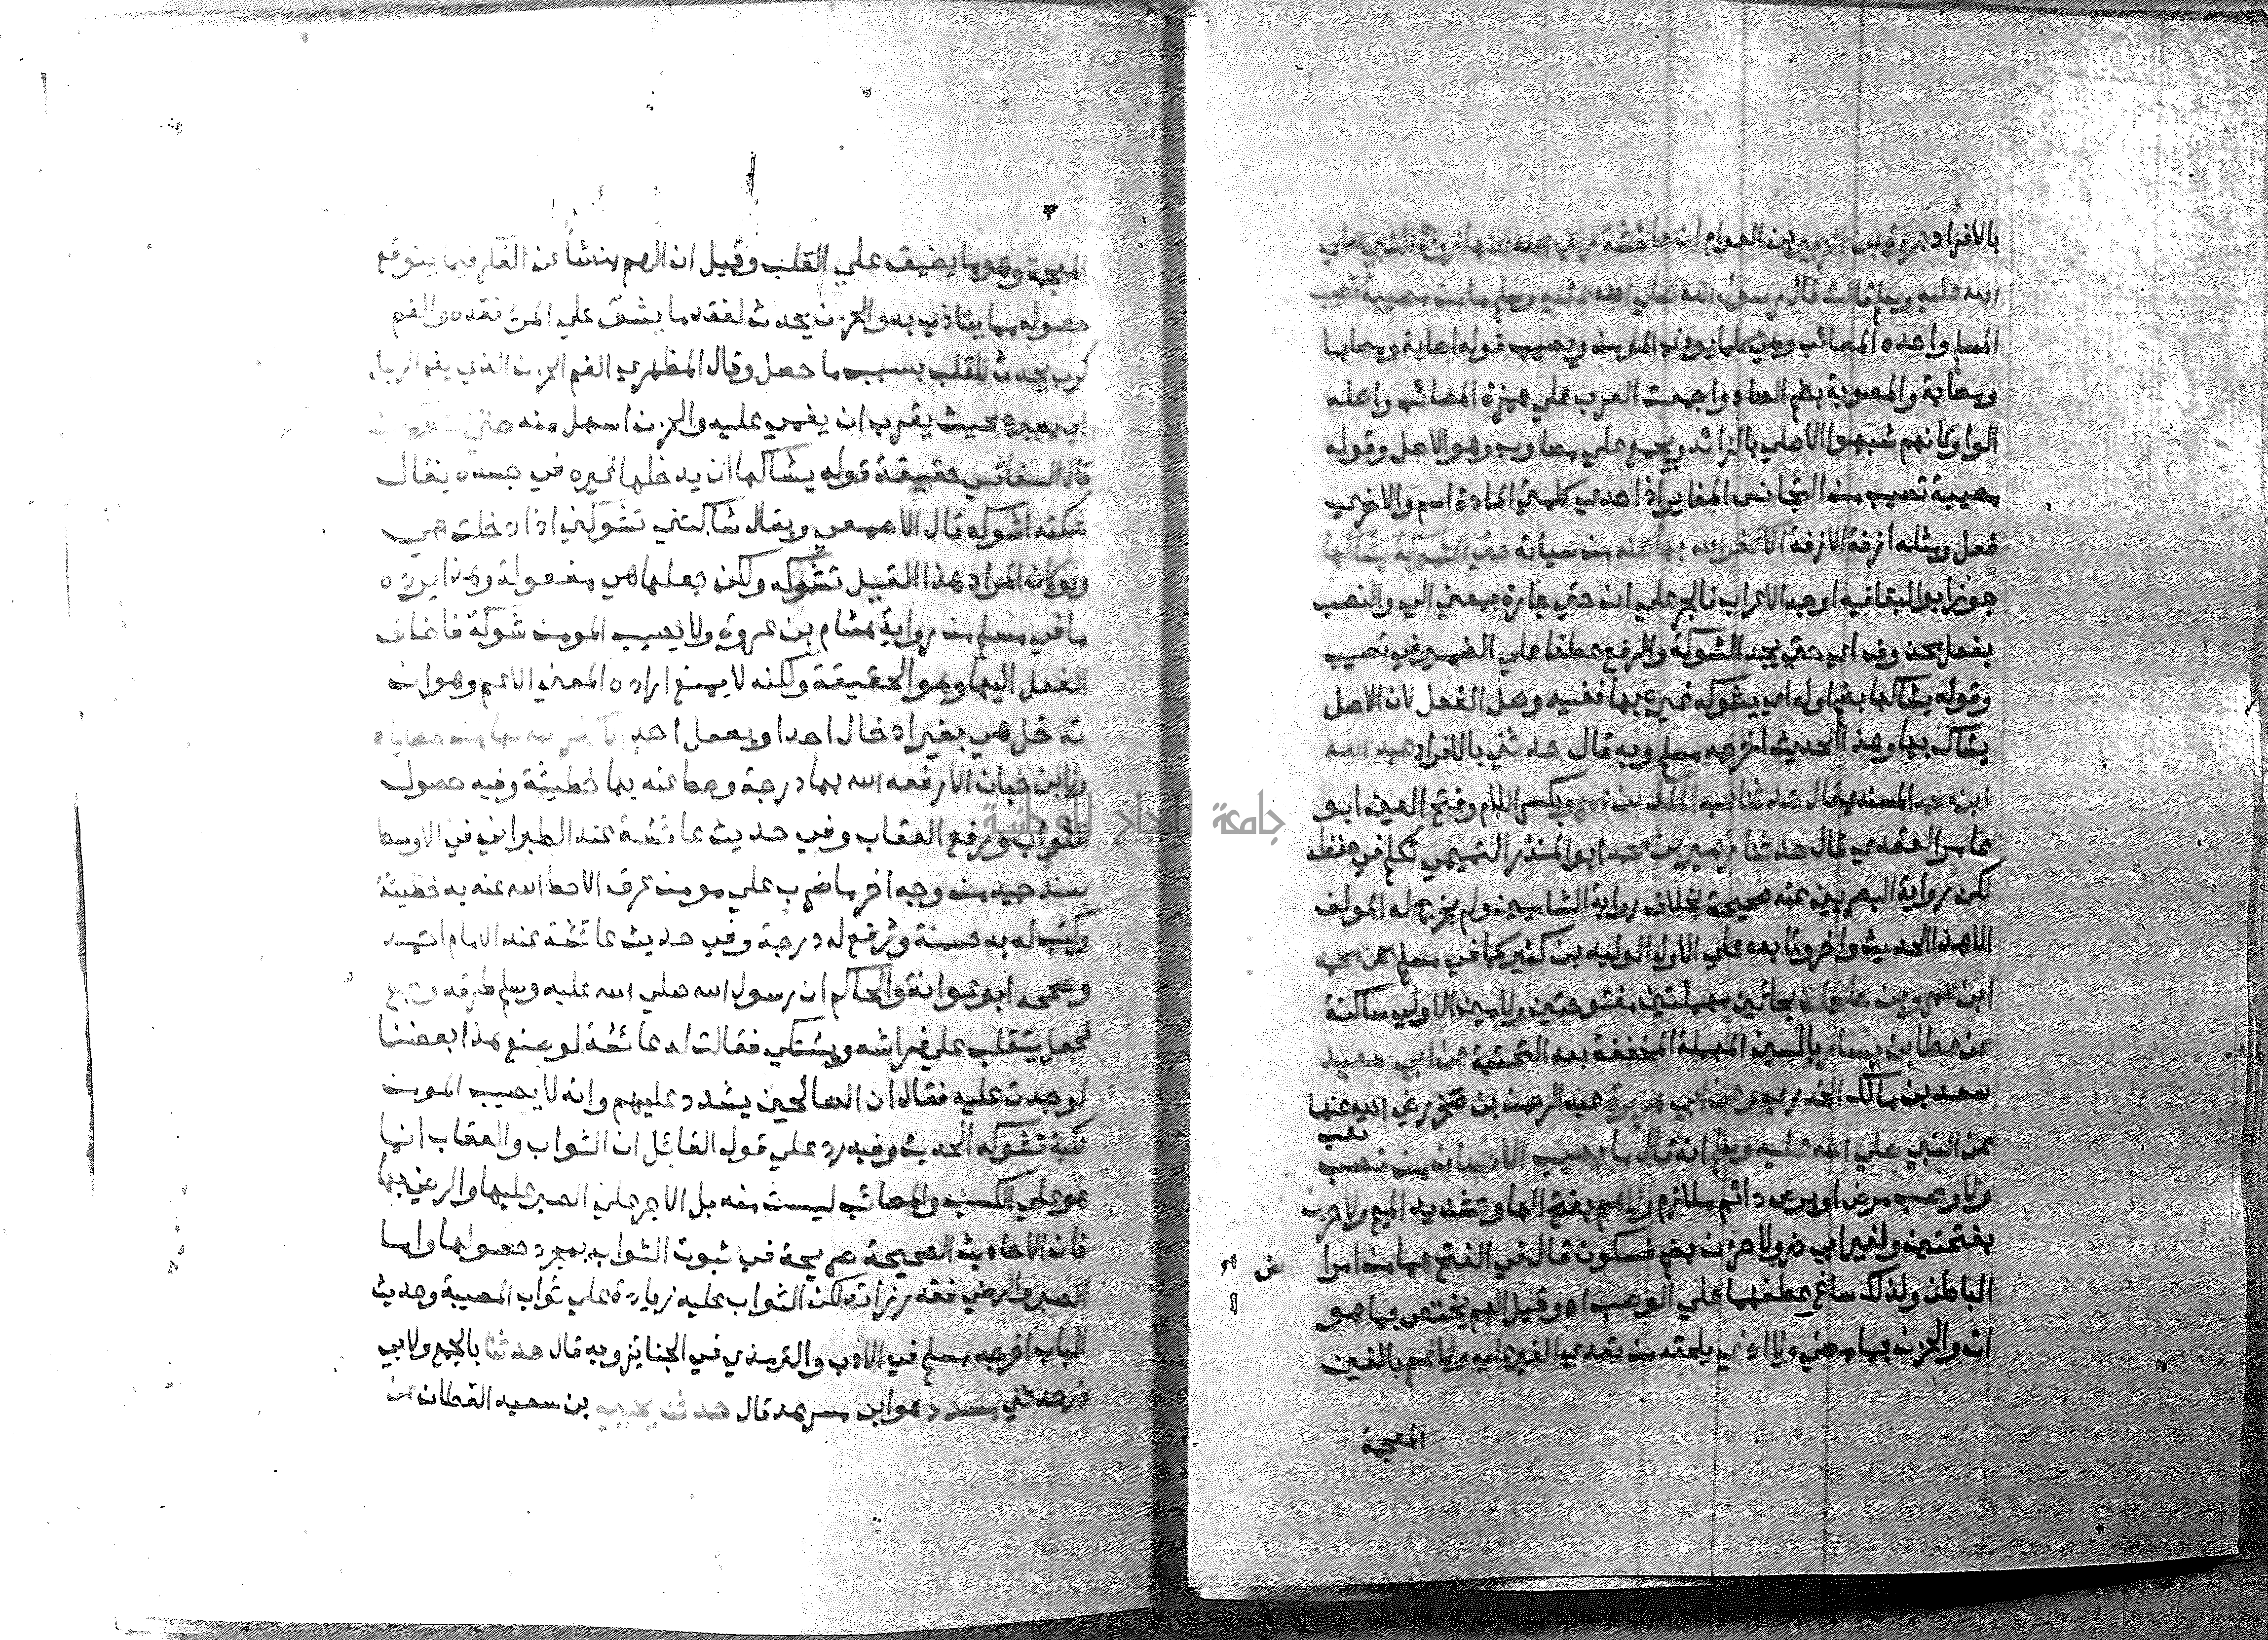 بالافراد عروة بن الزبير بن العوام ان عائشة رضي الله عنها زوج النبي صلي
الله عليه وسلم قالت قال رسول الله صلي الله عليه وسلم ما من مصيبة تصيب
المسلم واحده المصائب وهي كلما يوذي المومن ويصيب قوله اصابة ومصابا
ومصابة والمصوبة بضم الصاد واجمعت العرب علي همزة المصائب واصله
الواو كانهم شبهوا الاصلي بالزائد ويجمع علي مصاوب وهو الاصل وقوله
مصيبة تصيب من التجانس المغاير اذ احدي كلمتي المادة اسم والاخري
فعل ومثله ازفة الازفة الا كفر الله بها عنه من سياته حتي الشوكة يشاكها
جوز ابو البقا فيه اوجه الاعراب فالجر علي ان حتي جارة بمعني الي والنصب
بفعل محذوف اي حتي يجد الشوكة والرفع عطفا علي الضمير في تصيب
وقوله يشاكها بضم اوله اي يشوكه غيره بها ففيه وصل الفعل لان الاصل
يشاك بها وهذا الحديث اخرجه مسلم وبه قال حدثني بالافراد عبد الله
ابن محمد المسندي قال حدثنا عبد الملك بن عمرو بكسر اللام وفتح العين ابو
عامر العقدي قال حدثنا زهير بن محمد ابو المنذر التميمي تكلم في حفظه
لكن رواية البصريين عنه صحيحة بخلاف رواية الشاميين ولم يخرج له المولف
الا هذا الحديث واخر وتابعه علي الاول الوليد بن كثير كما في مسلم عن محمد
ابن عمرو بن حلحلة بحائين مهملتين مفتوحتين ولامين الاولي ساكنة
عن عطا بن يسار بالسين المهملة المخففة بعد التحتية عن ابي سعيد
سعد بن مالك الخدري وعن ابي هريرة عبد الرحمن بن صخر رضي الله عنهما
عن النبي صلي الله عليه وسلم انه قال ما يصيب الانسان من نصب
تعب
ولا وصب مرض او مرض دائم ملازم ولا هم بفتح الها وتشديد الميم ولا حزن
بفتحتين ولغير ابي ذر ولا حزن بضم فسكون قال في الفتح هما من امرا
ض
الباطن ولذلك ساغ عطفهما علي الوصب اه وقيل الهم يختص بما هو
ات والحزن بما مضي ولا اذي يلحقه من تعدي الغير عليه ولا غم بالغين
المعجمة
المعجمة وهو ما يضيق علي القلب وقيل ان الهم ينشأ عن الفكر فيما يتوقع
حصوله مما يتاذي به والحزن يحدث لفقد ما يشق علي المرء فقده والغم
كرب يحدث للقلب بسبب ما حصل وقال المظهري الغم الحزن الذي يغم الرجل
اي يصيره بحيث يقرب ان يغمي عليه والحزن اسهل منه حتي الشوكة
قال السفاقسي حقيقة قوله يشاكها ان يدخلها غيره في جسده يقال
شكته اشوكه قال الاصمعي ويقال شاكتني تشوكني اذا دخلت هي
ولو كان المراد هذا القبيل تشوكه ولكن جعلها هي مفعولة وهذا يرده
ما في مسلم من رواية هشام بن عروة ولا يصيب المومن شوكة فاضاف
الفعل اليها وهو الحقيقة ولكنه لا يمنع اراده المعني الاعم وهو ان
تدخل هي بغير ادخال احد او بفعل احد الا كفر الله بها من خطاياه
ولابن حبان الا رفعه الله بها درجة وحط عنه بها خطيئة وفيه حصول
الثواب ورفع العقاب وفي حديث عائشة عند الطبراني في الاوسط
بسند جيد من وجه اخر ما ضرب علي مومن عرق الا حط الله عنه به خطيئة
وكتب له به حسنة ورفع له درجة وفي حديث عائشة عند الامام احمد
وصححه ابو عوانة والحاكم ان رسول الله صلي الله عليه وسلم طرقه وجع
فجعل يتقلب علي فراشه ويشتكي فقالت له عائشة لو صنع هذا بعضنا
لوجدت عليه فقال ان الصالحين يشدد عليهم وانه لا يصيب المومن
نكبة تشوكه الحديث وفيه رد علي قول القائل ان الثواب والعقاب انما
هو علي الكسب والمصائب ليست منه بل الاجر علي الصبر عليها والرضي بها
فان الاحاديث الصحيحة صريحة في ثبوت الثواب بمجرد حصولها واما
الصبر والرضي فقدر زائد لكن الثواب عليه زيادة علي ثواب المصيبة وحديث
الباب اخرجه مسلم في الادب والترمذي في الجنايز وبه قال حدثنا بالجمع ولابي
ذر حدثني مسدد هو ابن مسرهد قال حدثنا يحيي بن سعيد القطان عن
جامعة النجاح الوطنية